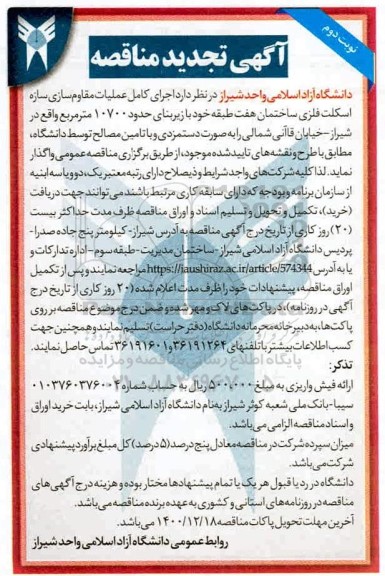 نوبت دوم
آگهی تجدید مناقصه
دانشگاه آزاد اسلامی واحد شیراز در نظر دارد اجرای کامل عملیات مقاوم‌سازی سازه
اسکلت فلزی ساختمان هفت طبقه خود با زیربنای حدود ۱۰۷۰۰ مترمربع واقع در
شیراز-خیابان قاآنی شمالی را به صورت دستمزدی و با تامین مصالح توسط دانشگاه،
مطابق با طرح و نقشه‌های تایید شده موجود، از طریق برگزاری مناقصه عمومی واگذار
نماید. لذا کلیه شرکت‌های واجد شرایط و ذیصلاح دارای رتبه معتبر یک، دو یا سه ابنیه
از سازمان برنامه و بودجه که دارای سابقه کاری مرتبط باشند می‌توانند جهت دریافت
(خرید)، تکمیل و تحویل و تسلیم اسناد و اوراق مناقصه ظرف مدت حداکثر بیست
(۲۰) روز کاری از تاریخ درج آگهی مناقصه به آدرس شیراز- کیلومتر پنج جاده صدرا-
پردیس دانشگاه آزاد اسلامی شیراز - ساختمان مدیریت-طبقه سوم- اداره تدارکات و
یا به آدرس https://iaushiraz.ac.ir/article/574344 مراجعه نمایند و پس از تکمیل
اوراق مناقصه، پیشنهادات خود را ظرف مدت اعلام شده (۲۰ روز کاری از تاریخ درج
آگهی در روزنامه)، در پاکت‌های لاک و مهر شده و ضمن درج موضوع مناقصه بر روی
پاکت‌ها، به دبیرخانه محرمانه دانشگاه (دفتر حراست) تسلیم نمایند و همچنین جهت
کسب اطلاعات بیشتر با تلفنهای ۳۶۱۹۱۲۶۲ و ۳۶۱۹۱۶۰۱ تماس حاصل نمایند.
تذکر:
ارائه فیش واریزی به مبلغ ۵۰۰،۰۰۰ ریال به حساب شماره ۰۱۰۳۷۶۰۳۷۶۰۰۴
سیبا-بانک ملی شعبه کوثر شیراز به نام دانشگاه آزاد اسلامی شیراز، بابت خرید اوراق
و اسناد مناقصه الزامی می‌باشد.
میزان سپرده شرکت در مناقصه معادل پنج درصد (۵ درصد) کل مبلغ برآورد پیشنهادی
شرکت می‌باشد.
دانشگاه در رد یا قبول هر یک یا تمام پیشنهادها مختار بوده و هزینه درج آگهی‌های
مناقصه در روزنامه‌های استانی و کشوری به عهده برنده مناقصه می‌باشد.
آخرین مهلت تحویل پاکات مناقصه ۱۴۰۰/۱۲/۱۸ می‌باشد.
روابط عمومی دانشگاه آزاد اسلامی واحد شیراز